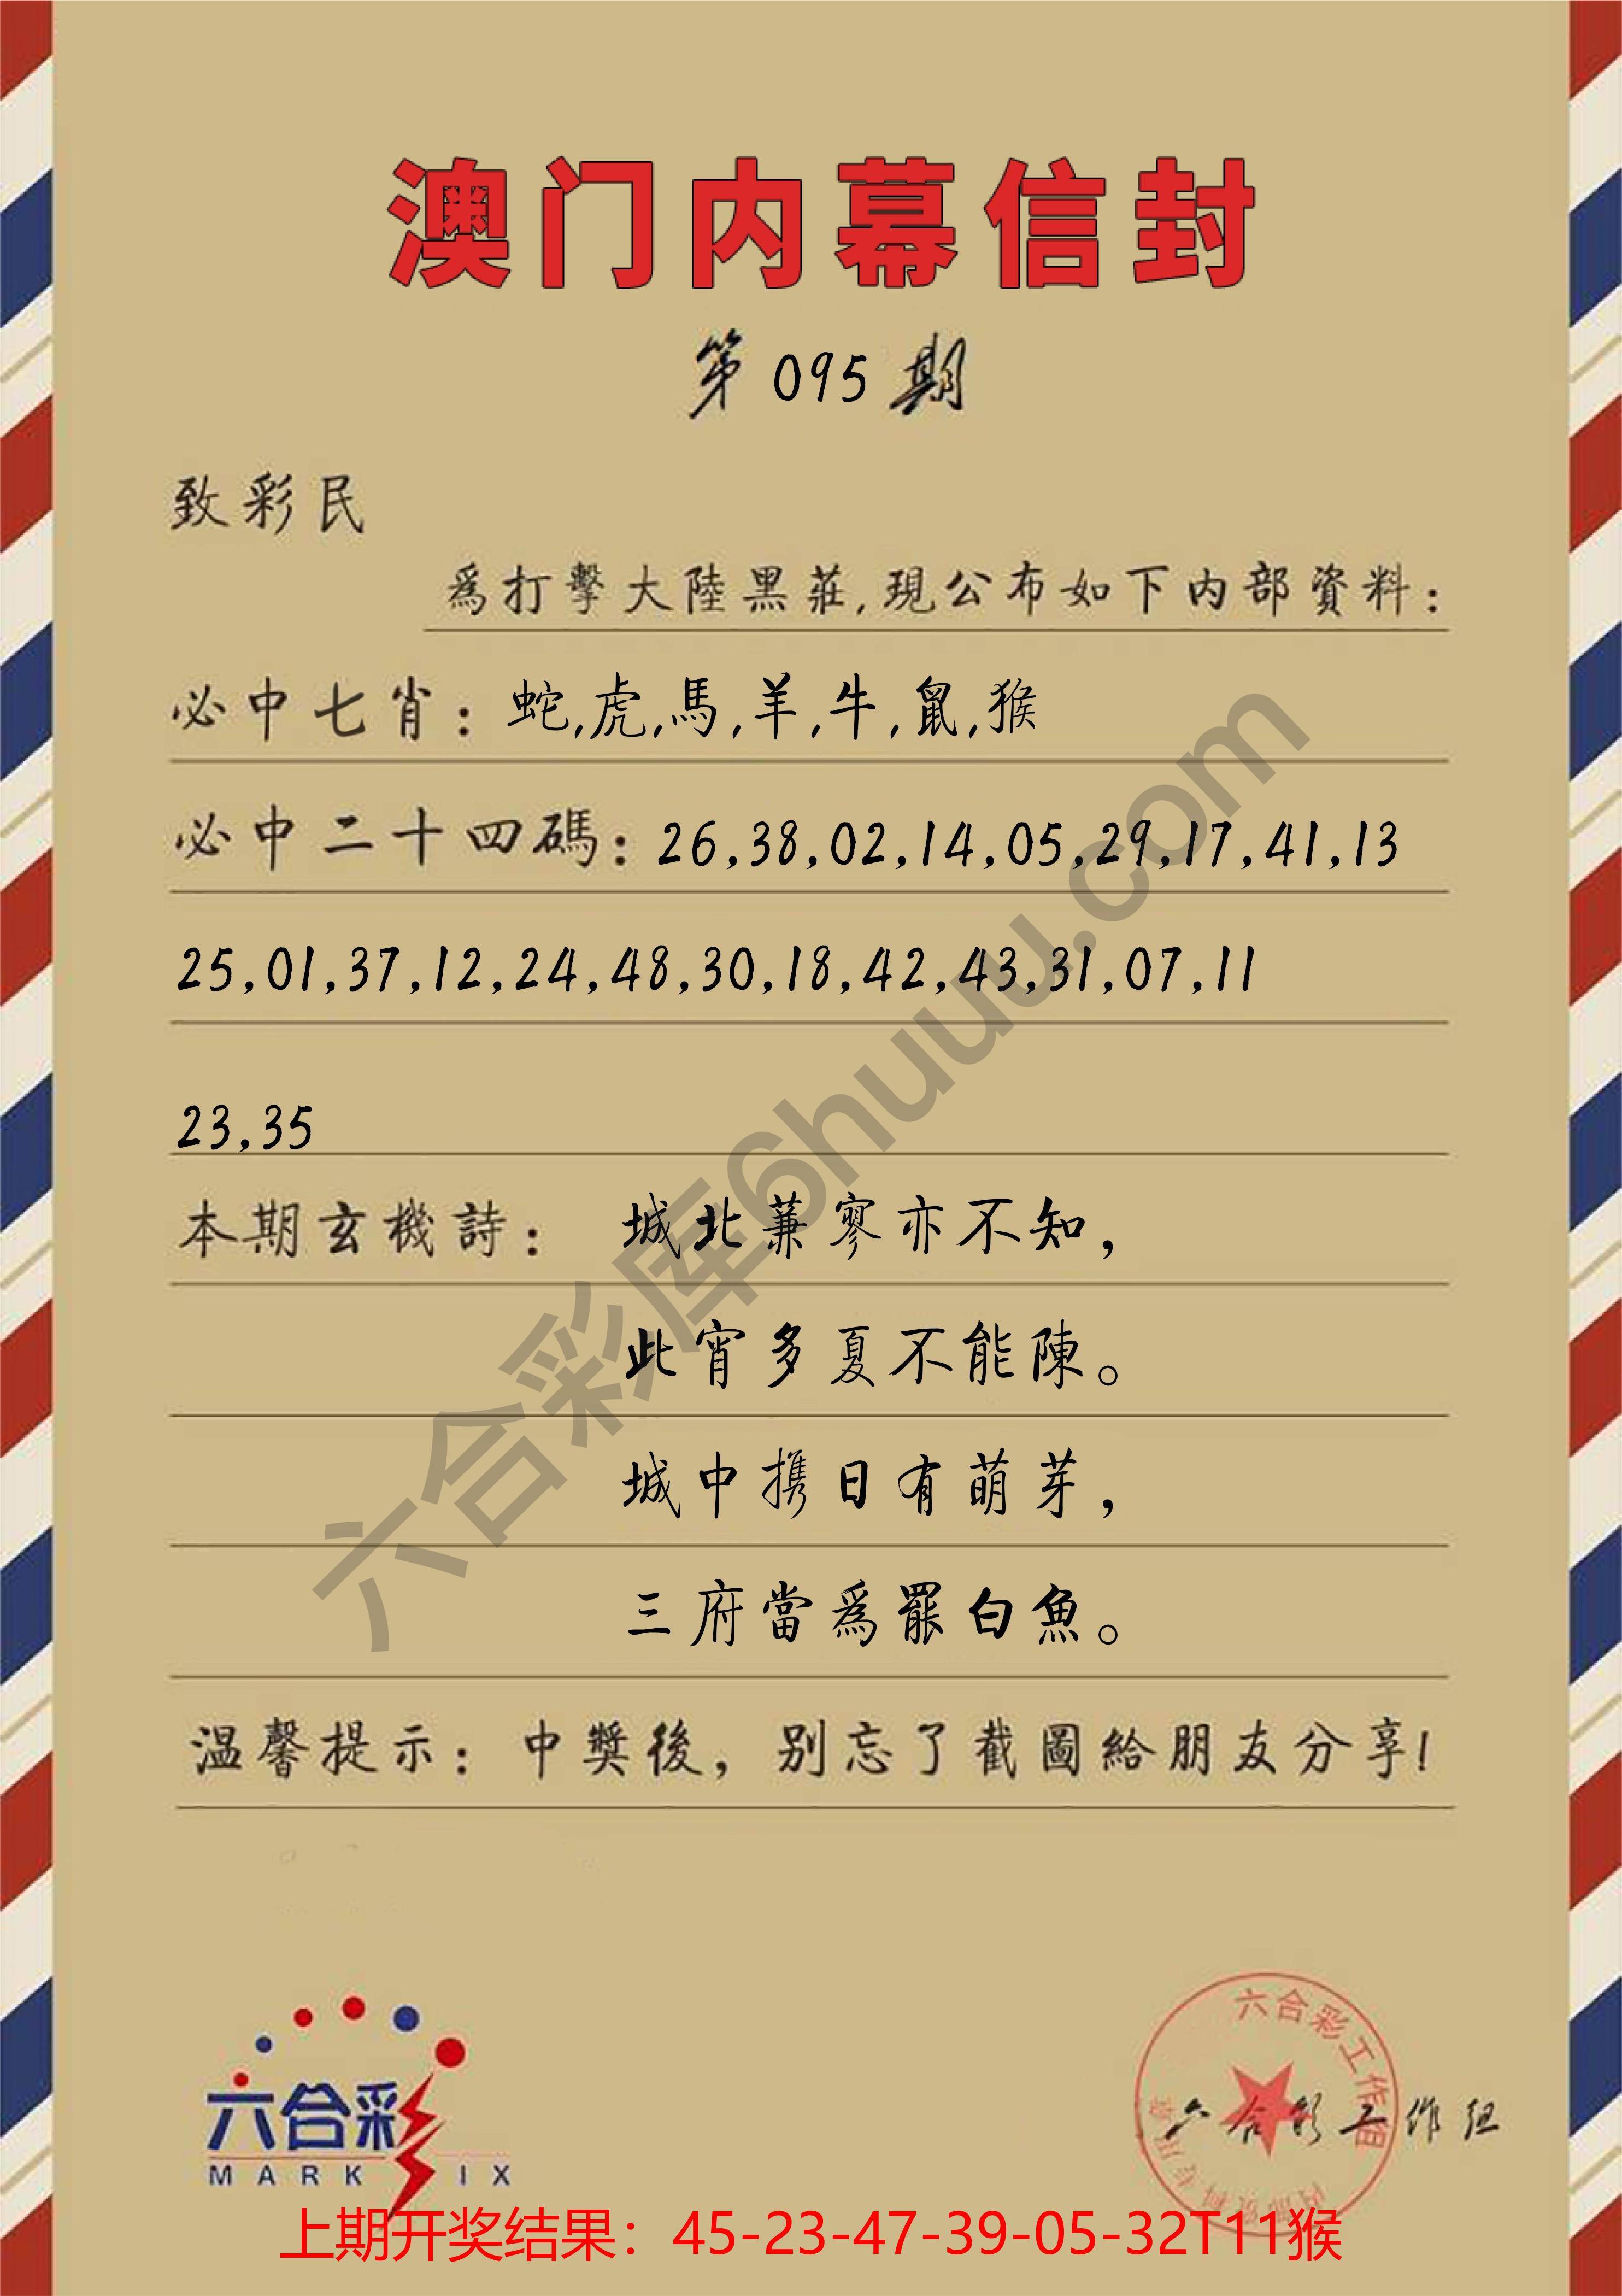 澳门内幕信封
第095期
致彩民
爲打擊大陸黑莊,現公布如下内部資料:
必中七肖:蛇,虎,馬,羊,牛,鼠,猴
必中二十四碼:26,38,02,14,05,29,17,41,13
25,01,37,12,24,48,30,18,42,43,31,07,11
23,35
本期玄機詩: 城北蒹寥亦不知,
此宵多夏不能陳。
城中携日有萌芽,
三府當爲罷白魚。
温馨提示:中獎後,别忘了截圖給朋友分享!
六合彩库6huuu.com
六合彩
MARK IX
六合彩工作组
六合彩工作组
上期开奖结果：45-23-47-39-05-32T11猴